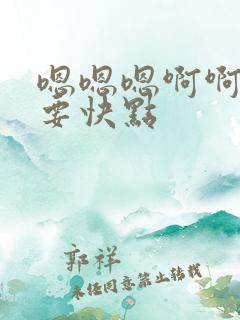 嗯嗯嗯啊啊
要快點
郭祥
未经同意禁止转载